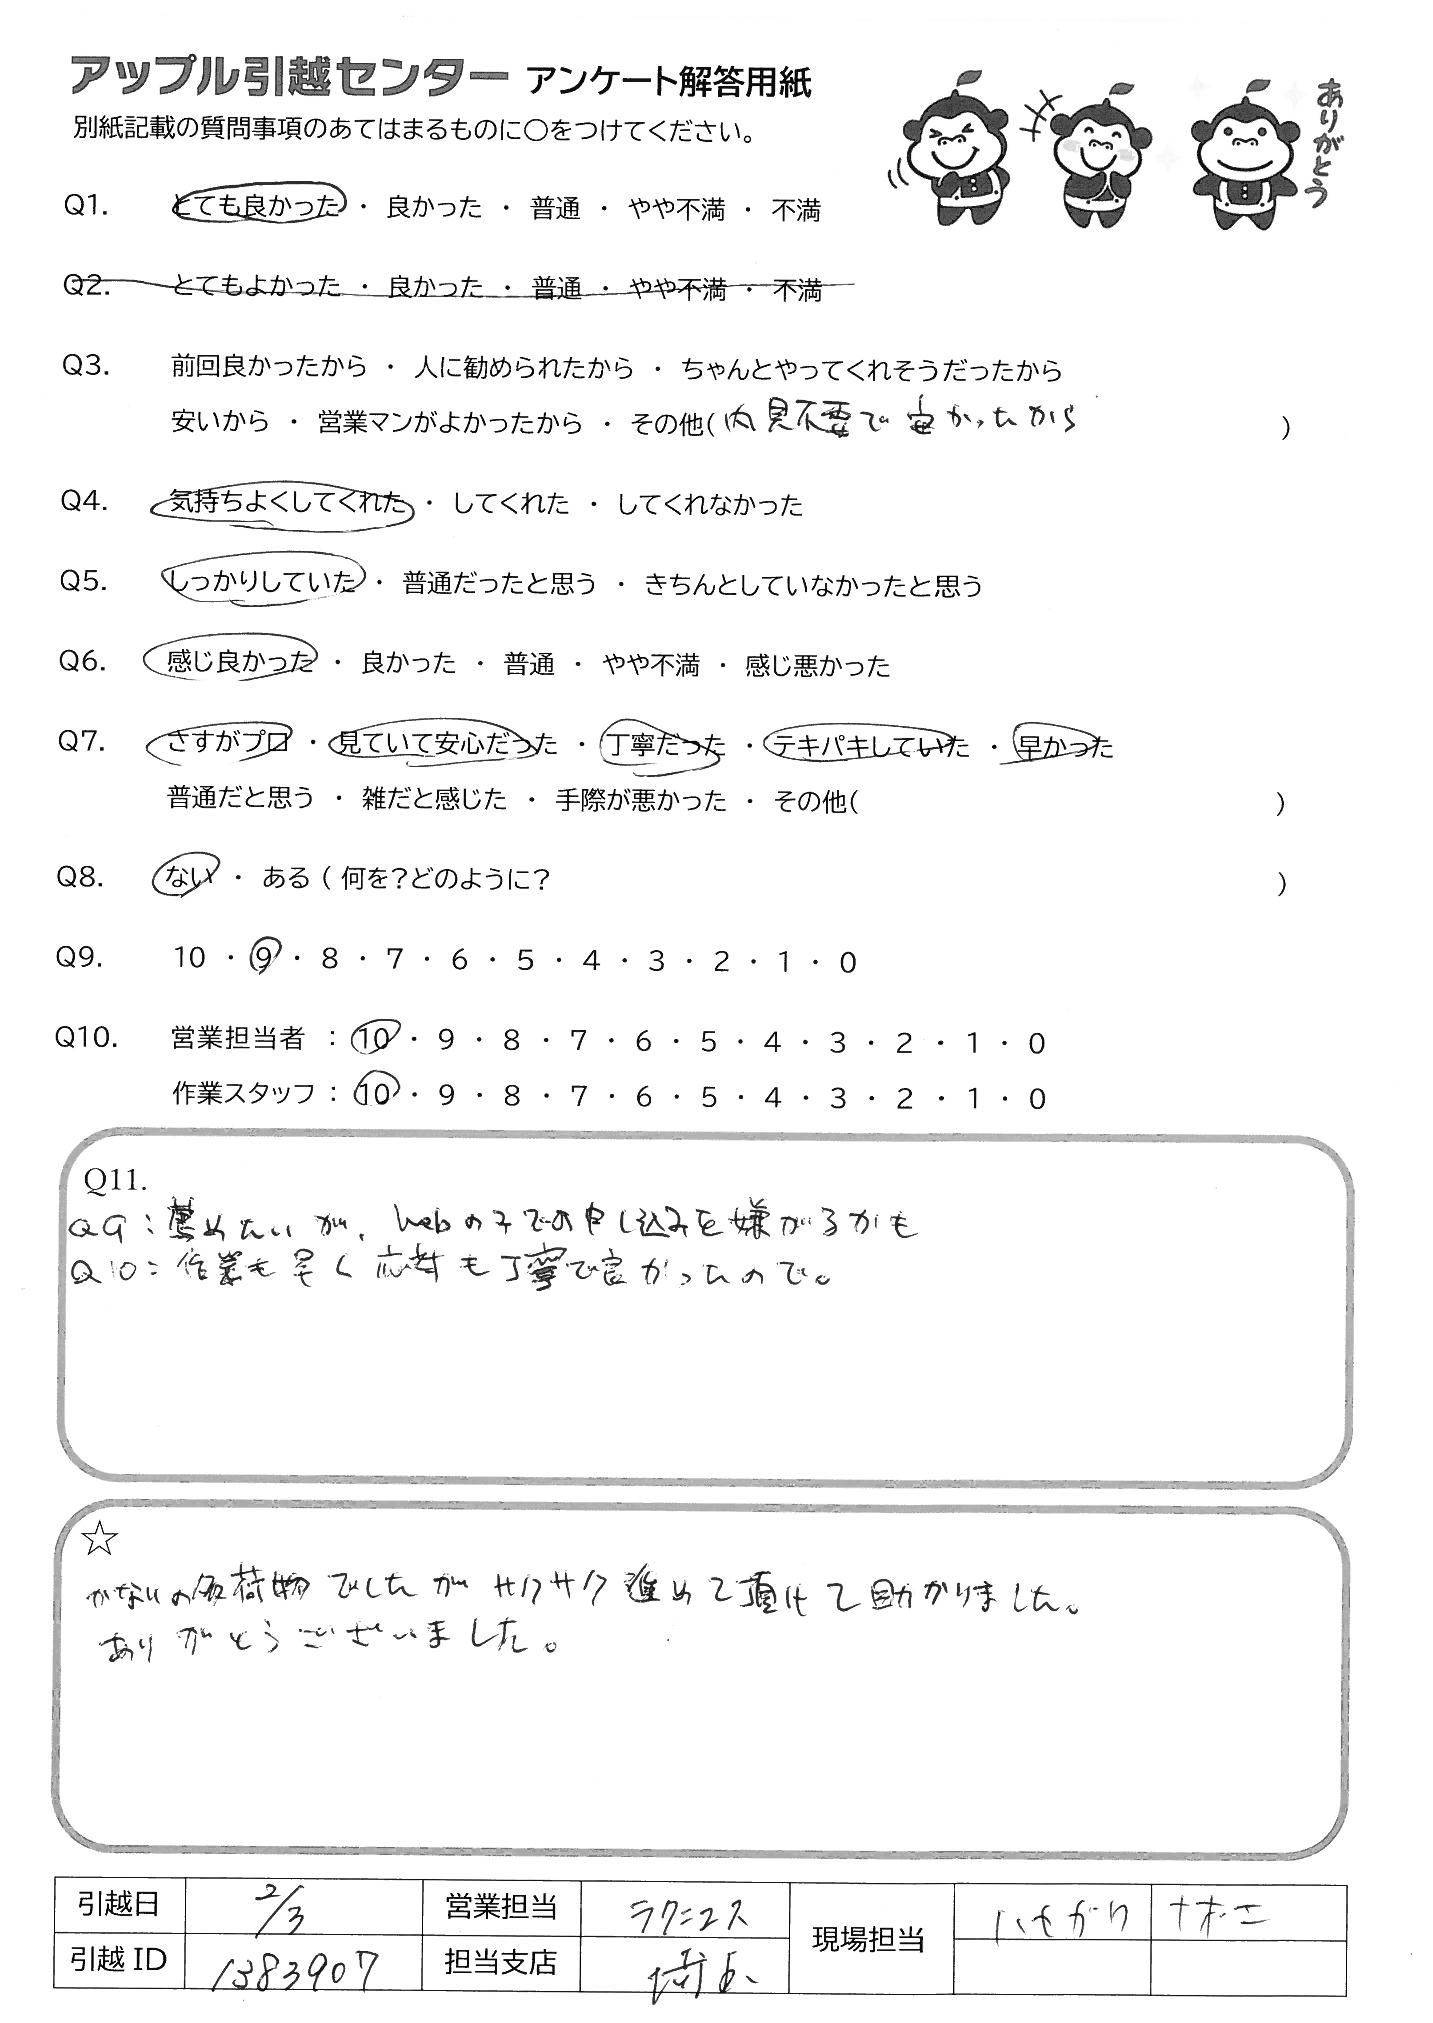 アップル引越センター アンケート解答用紙
別紙記載の質問事項のあてはまるものに〇をつけてください。
ありがとう
Q1. とても良かった ・ 良かった ・ 普通 ・ やや不満 ・ 不満
Q2. とてもよかった ・ 良かった ・ 普通 ・ やや不満 ・ 不満
Q3. 前回良かったから ・ 人に勧められたから ・ ちゃんとやってくれそうだったから
安いから ・ 営業マンがよかったから ・ その他( 内見不要で安かったから )
Q4. 気持ちよくしてくれた ・ してくれた ・ してくれなかった
Q5. しっかりしていた ・ 普通だったと思う ・ きちんとしていなかったと思う
Q6. 感じ良かった ・ 良かった ・ 普通 ・ やや不満 ・ 感じ悪かった
Q7. さすがプロ ・ 見ていて安心だった ・ 丁寧だった ・ テキパキしていた ・ 早かった
普通だと思う ・ 雑だと感じた ・ 手際が悪かった ・ その他( )
Q8. ない ・ ある ( 何を?どのように? )
Q9. 10 ・ 9 ・ 8 ・ 7 ・ 6 ・ 5 ・ 4 ・ 3 ・ 2 ・ 1 ・ 0
Q10. 営業担当者 : 10 ・ 9 ・ 8 ・ 7 ・ 6 ・ 5 ・ 4 ・ 3 ・ 2 ・ 1 ・ 0
作業スタッフ : 10 ・ 9 ・ 8 ・ 7 ・ 6 ・ 5 ・ 4 ・ 3 ・ 2 ・ 1 ・ 0
Q11.
Q9:薦めたいが、webのみでの申し込みを嫌がるかも
Q10:作業も早く応対も丁寧で良かったので。
☆
かなりの荷物でしたがサクサク進めて頂けて助かりました。
ありがとうございました。
引越日 2/3 営業担当 ラクニコス 現場担当
引越ID 1383907 担当支店 埼玉